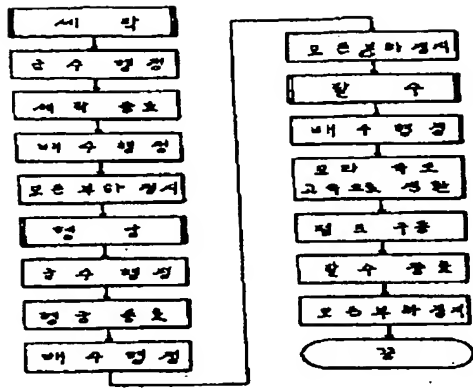 세탁
급수행정
세탁종료
배수행정
모든부하정지
헹굼
급수행정
헹굼종료
배수행정
모든부하정지
탈수
배수행정
모타속도
고속으로전환
펌프구동
탈수종료
모든부하정지
끝